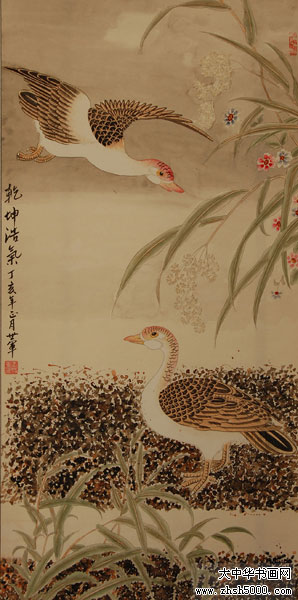 乾坤浩氣 丁亥年正月
大中华书画网
www.zhsh5000.com